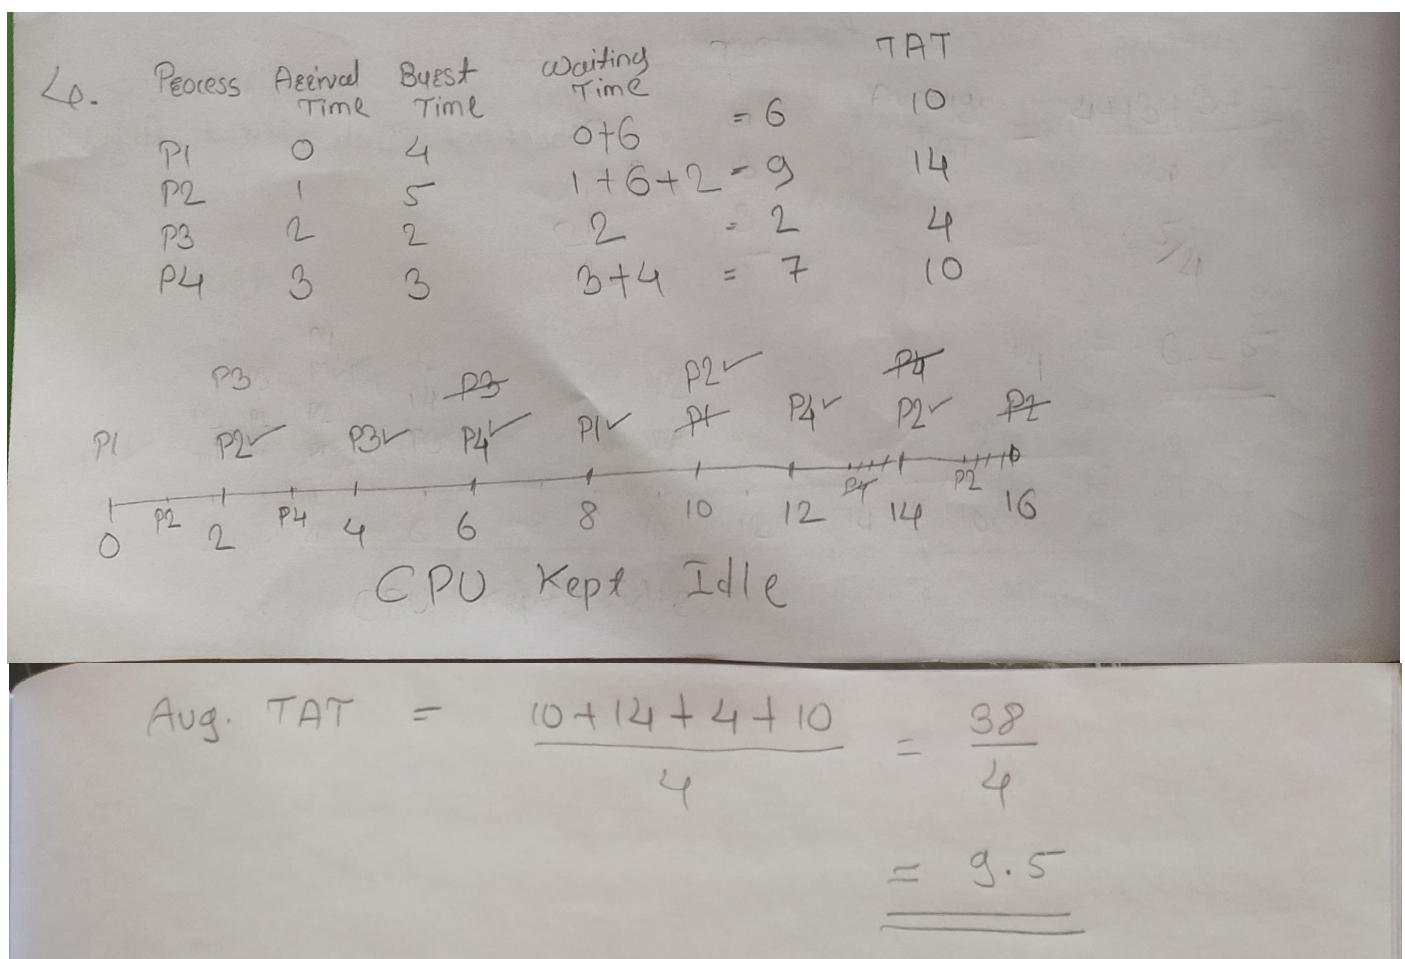 4.
Process Arrival Time Burst Time Waiting Time TAT
P1 0 4 0+6 = 6 10
P2 1 5 1+6+2 = 9 14
P3 2 2 2 = 2 4
P4 3 3 3+4 = 7 10
P3 P3 P2✓ P4
P1 P2✓ P3✓ P4✓ P1✓ P1 P4✓ P2✓ P2
P2 P4 P4 P2
0 2 4 6 8 10 12 14 16
CPU Kept Idle
Avg. TAT = 10+14+4+10 / 4 = 38 / 4
= 9.5